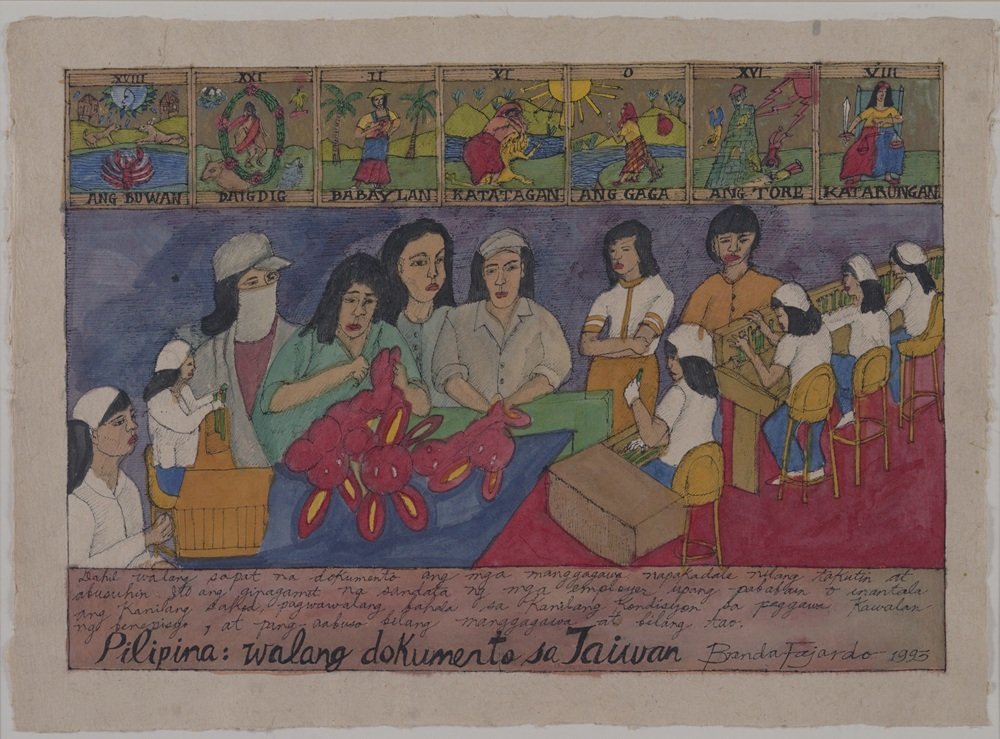 XVIII XXI II XI O XVI VIII
ANG BUWAN DAIGDIG BABAYLAN KATATAGAN ANG GAGA ANG TORE KATARUNGAN
Dahil walang sapat na dokumento ang mga manggagawa napakadale nilang takutin at
abusuhin. Ito ang ginagamit na sandata ng mga employer upang pababain o inantala
ang kanilang sahod, pagwawalang bahala sa kanilang kondisyon sa paggawa, kawalan
ng benepisyo, at pang-aabuso bilang manggagawa at bilang tao.
Pilipina: walang dokumento sa Taiwan Brenda Fajardo 1993